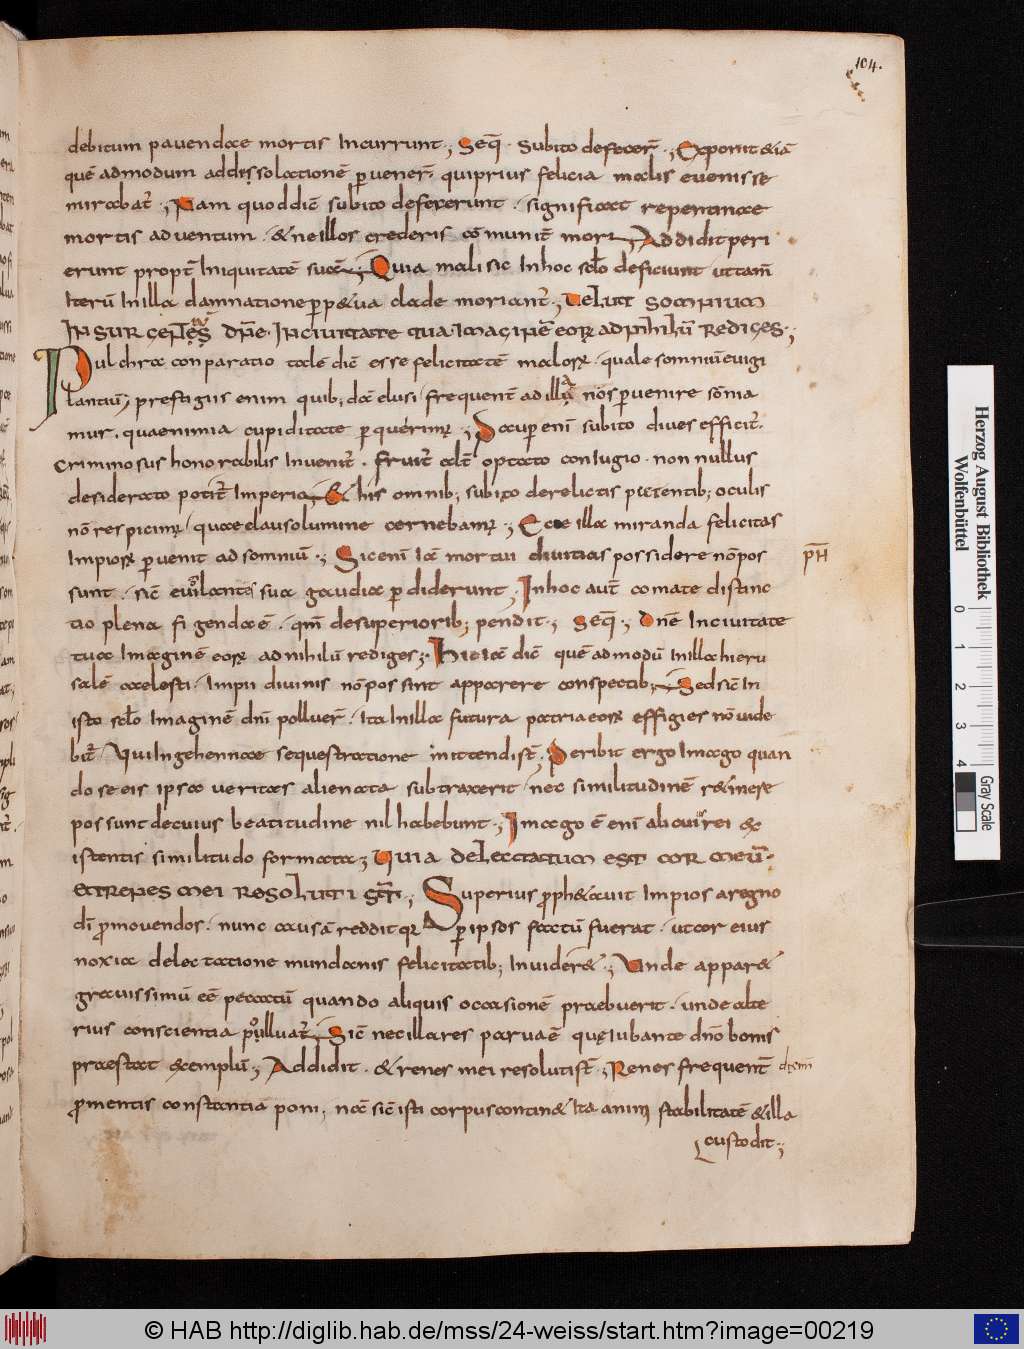 104.
debitum pavendae mortis Incurrunt ; Seq̄ · Subito defecer̄ · ; Exponit & iā
quē admodum ad disolationē pervener̄ · qui prius felicia malis evenisse
mirabat̄ · ; Nam quod dic̄ subito defecerunt · significat repentinae
mortis adventum · & ne illos crederis cōmunit̄ mori ; Addidit peri
erunt propt̄ Iniquitatē suā ; Quia mali sic In hoc sc̄lo deficiunt ut tam̄
Iterū In illa damnatione perpetua clade moriant̄ · ; Velut somnium
In surgentes dn̄e · In civitate tua Imaginē eorꝝ ad nihilū rediges · ;
Pulchra conparatio talē dic̄ esse felicitatē malorꝝ · quale somniū evigi
lantiū ; prestigiis enim quib; dā elusi frequent̄ ad illā nos pervenire somnia
mur · quae nimia cupiditate perquerimꝰ · ; Pauper enī subito dives efficit̄ ·
criminosus honorabilis Invenit̄ · fruit̄ alt̄ optato coniugio · non nullus
desiderato potit̄ Imperio ; & his omnib; subito derelictis patentib; oculis
nō respicimꝰ quae clauso lumine cernebamꝰ · ; Ecce illa miranda felicitas
Impiorꝝ pervenit ad somniū · ; Sic enī Iā mortui divitias possidere nō pos
sunt · sic̄ evigilantes sua gaudia perdiderunt · In hoc aut̄ comate distinc
tio plena figenda ē · qm̄ de superiorib; pendit · ; Seq̄ · ; Dn̄e In civitate
tua Imaginē eorꝝ ad nihilū rediges ; · Hic Iā dic̄ quē admodū In illa hieru
salē caelesti · Impii divinis nō possint apparere conspectib; Sed sic̄ In
isto sc̄lo Imaginē dn̄i polluer̄ · Ita In illa futura patria eorꝝ effigies nō vide
bit̄ · Qui In gehennae sequestratione mittendi st̄ · Peribit ergo Imago quan
do se eis ipsa veritas alienata subtraxerit · nec similitudinē retinere
possunt de cuius beatitudine nil habebunt · ; Imago ē enī alicui rei ex
istentis similitudo formata ; Quia delectatum est cor meū ·
et renes mei resoluti st̄ ; Superius prophetavit Impios a regno
dī promovendos · nunc causā reddit qr̄ per ipsos factū fuerat · ut cor eius
noxia delectatione mundanis felicitatib; Invideret · ; Unde apparet
gravissimū eē peccatū quando aliquis occasionē praebuerit · unde alte
rius conscientia polluat̄ ; Sic̄ nec illa res parva ē quę Iubante dn̄o bonis
praestat exemplū ; Addidit · & renes mei resoluti st̄ ; Renes frequent̄
pro mentis constantia poni · nā sic̄ isti corpus continent Ita animꝰ stabilitatē & illa
custodit · ;
Herzog August Bibliothek
Wolfenbüttel
0 1 2 3 4
Gray Scale
© HAB http://diglib.hab.de/mss/24-weiss/start.htm?image=00219